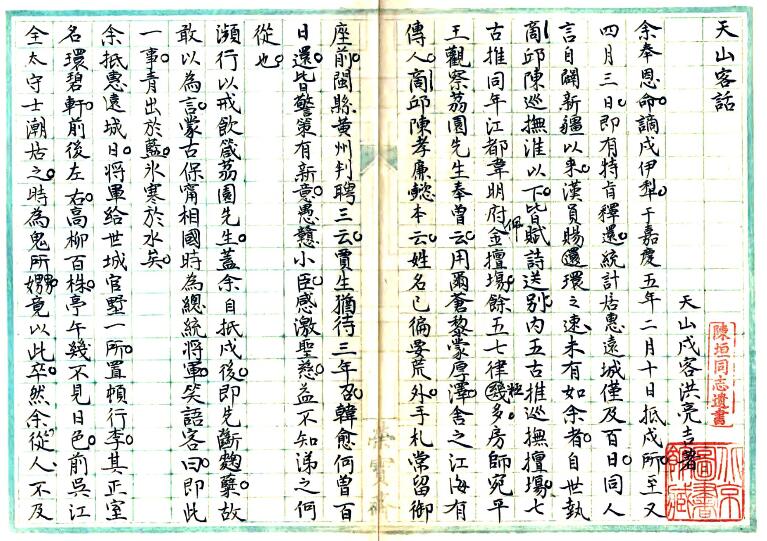 天山客話
天山戍客洪亮吉著
余奉恩命謫戍伊犁于嘉慶五年二月十日抵戍所至又
四月三日即有特旨釋還統計居惠遠城僅及百日同人
言自闢新疆以來漢員賜還之速未有如余者自世執
商邱陳巡撫淮以下皆賦詩送別内五古推巡撫擅場七
古推同年江都韋明府佩金擅場餘五七律極多房師宛平
王觀察荔園先生奉曾云用爾蒼黎蒙厚澤舍之江海有
傳人商邱陳孝廉懿本云姓名已徧要荒外手札常留御
座前閩縣黄州判聘三云賈生猶待三年召韓愈何曾百
日還皆警策有新意愚戇小臣感激聖慈益不知涕之何
從也
瀕行以戒飲箴荔園先生蓋余自抵戍後即先斷麴糵故
敢以為言蒙古保甯相國時為總統將軍笑語客曰即此
一事青出於藍氷寒於水矣
余抵惠遠城日將軍給世城官墅一所置頓行李其正室
名環碧軒前後左右高柳百株亭午幾不見日色前吳江
全太守士潮姑之時為鬼所嬲竟以此卒然余從人不及
陳垣同志遺書
北京圖書館藏